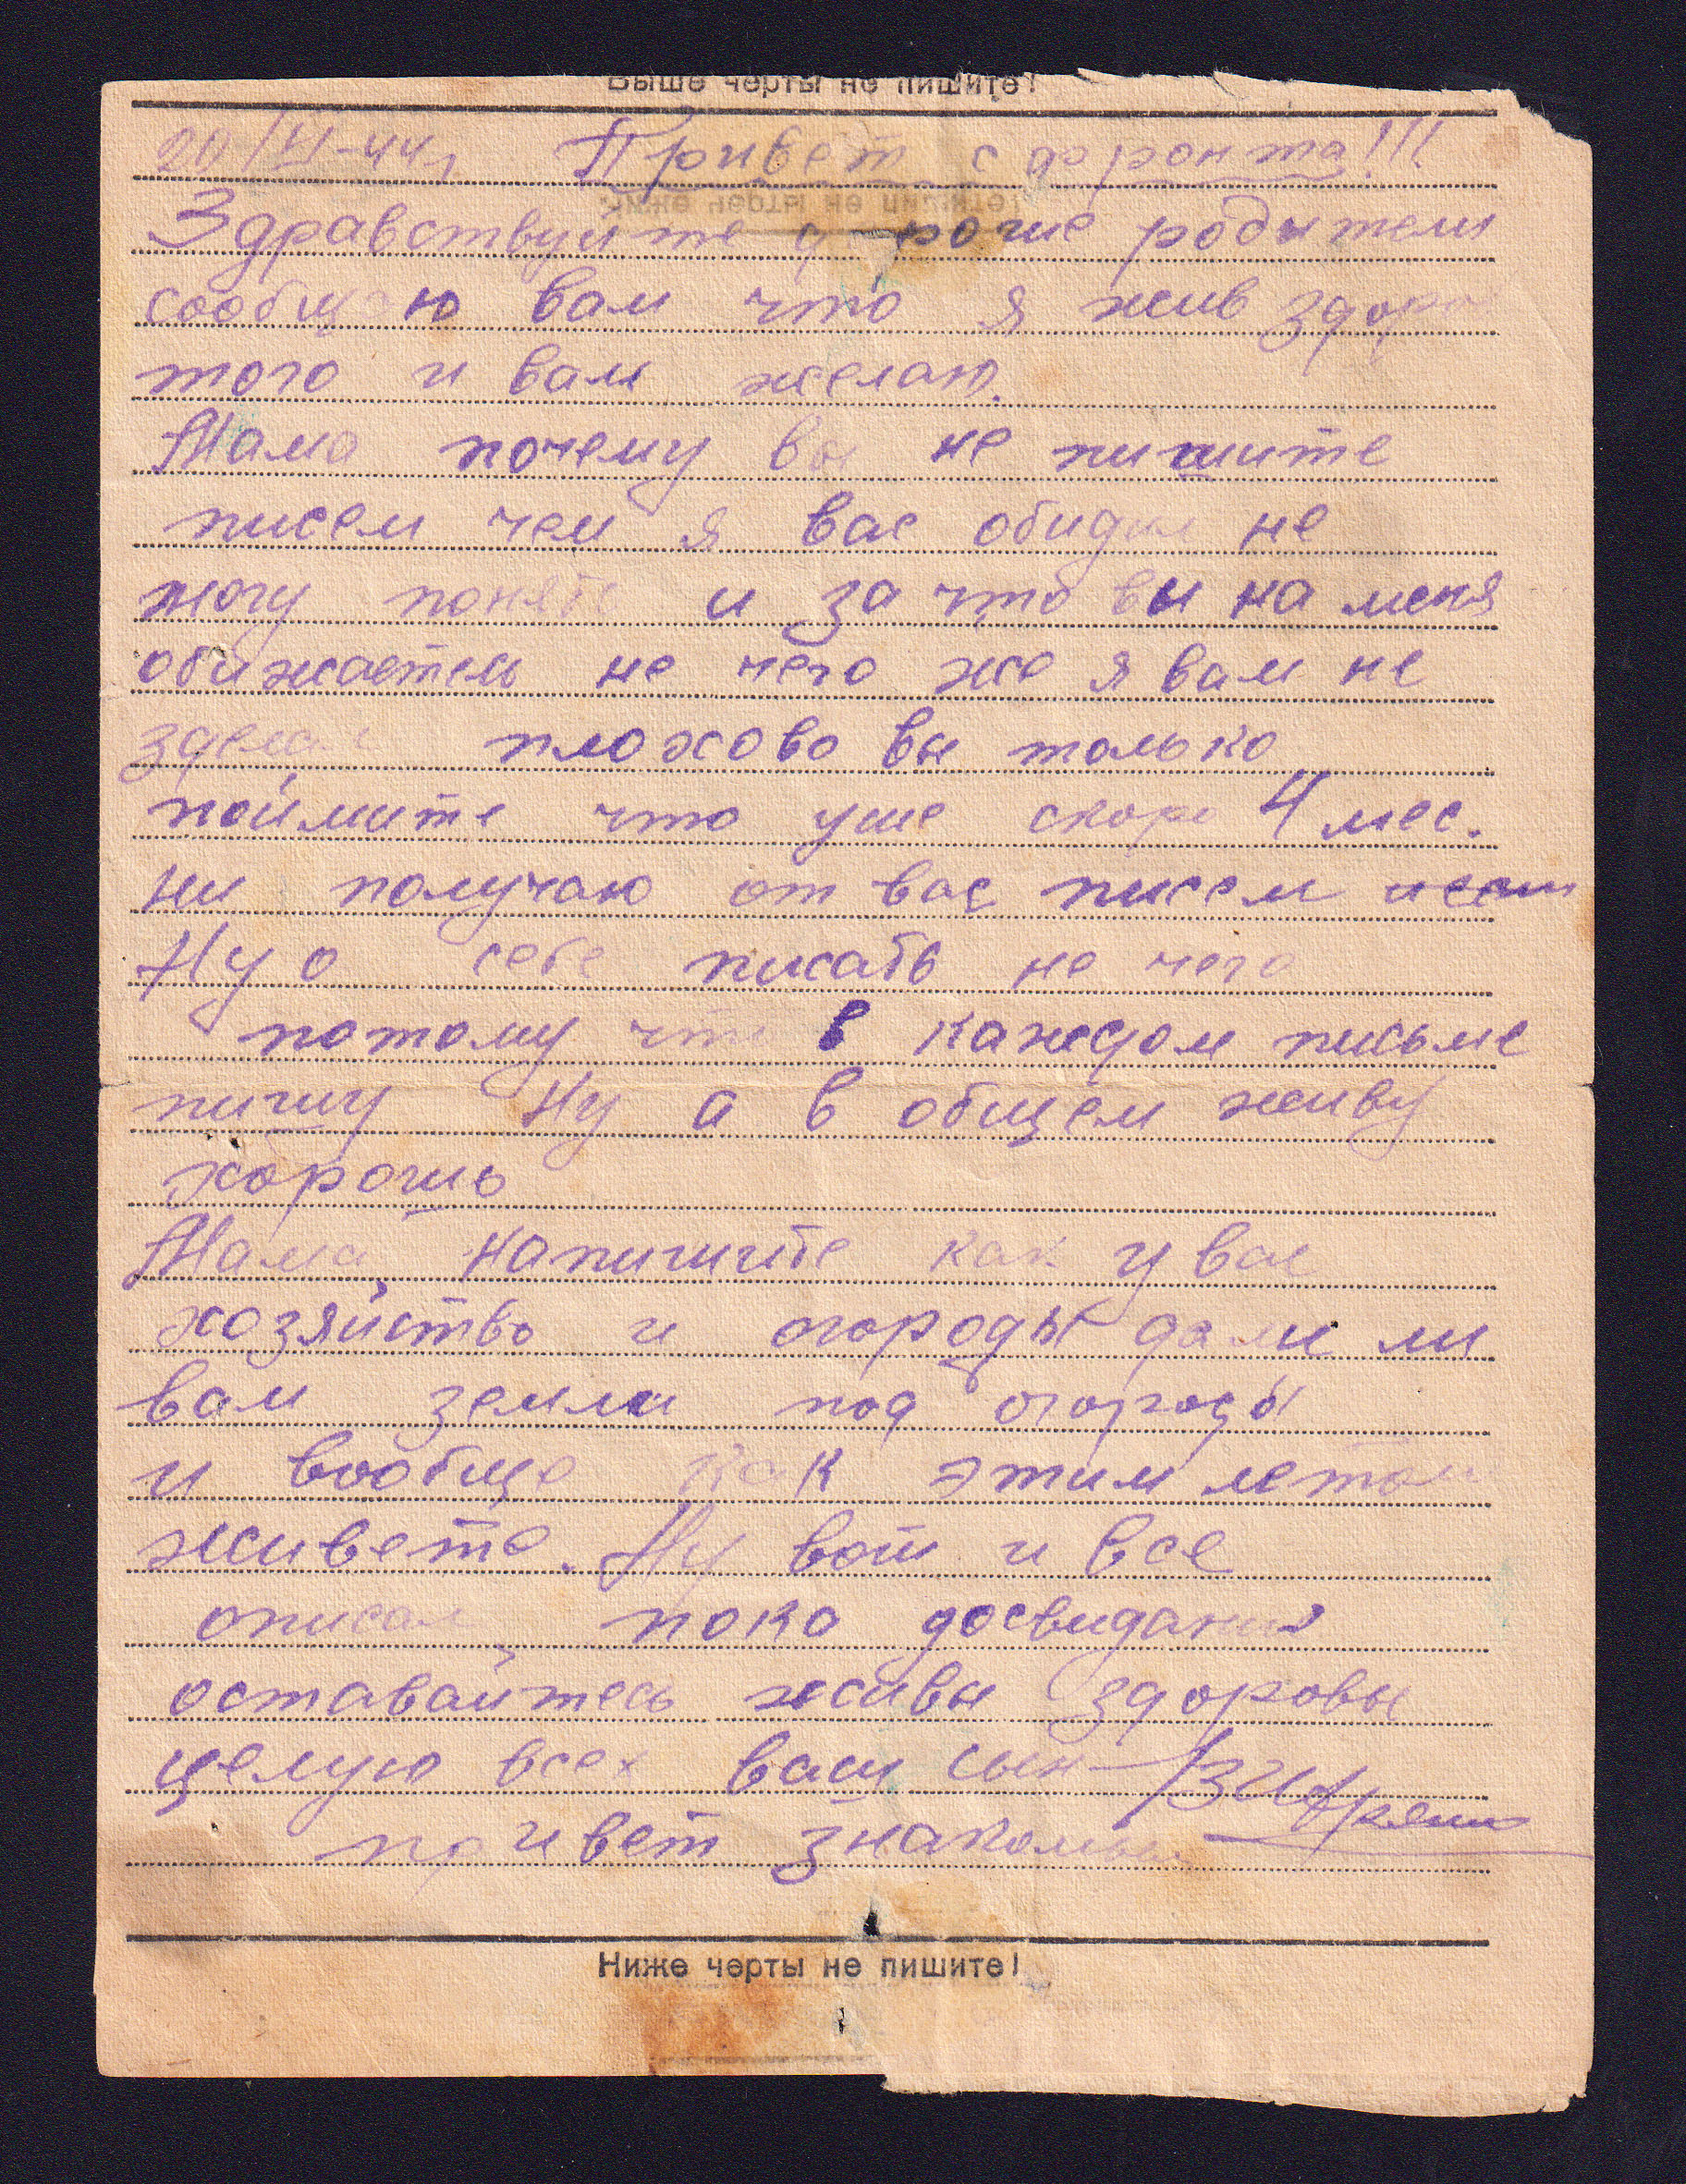 Выше черты не пишите!
20/VI-44г. Привет с фронта!!!
Здравствуйте дорогие родители
сообщаю вам что я жив здоров
того и вам желаю.
Мама почему вы не пишите
писем чем я вас обидил не
могу понять и за что вы на меня
обижаетесь не чего же я вам не
зделал плохово вы только
поймите что уже скоро 4 мес.
ни получаю от вас писем
Ну о себе писать не чего
потому что в каждом письме
пишу Ну а в общем живу
хорошо
Мама напишите как у вас
хозяйство и огороды дали ли
вам земли под огороды
и вообще как этим летом
живете. Ну вот и все
описал, пока досвидания
оставайтесь живы здоровы
целую всех ваш сын
привет знакомым
Ниже черты не пишите!